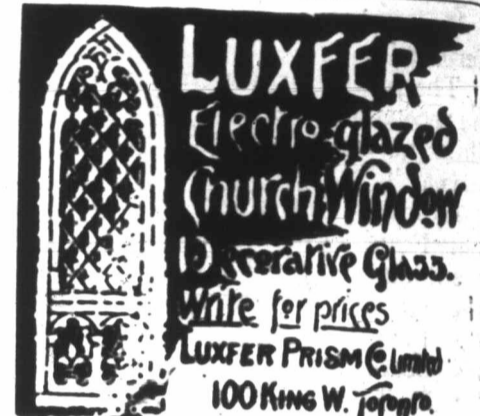 LUXFER
Electro-glazed
Church Window
Decorative Glass.
Write for prices
LUXFER PRISM Co. Limited
100 KING W. Toronto